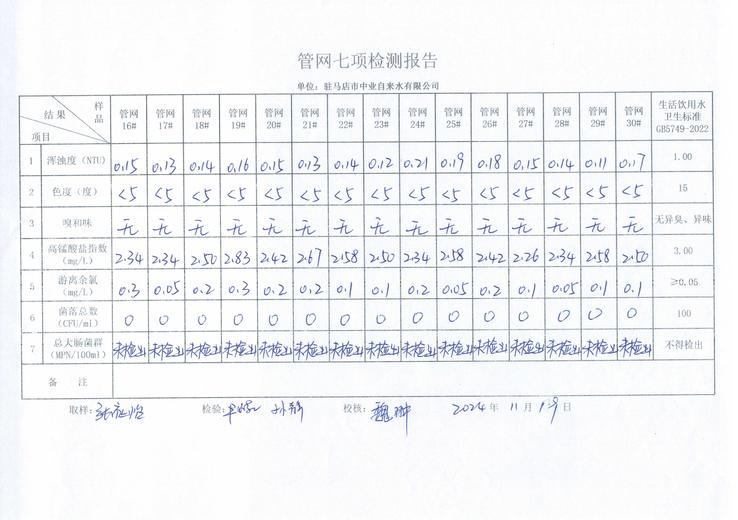 管网七项检测报告
单位：驻马店市中业自来水有限公司
结果 样品 项目 管网16# 管网17# 管网18# 管网19# 管网20# 管网21# 管网22# 管网23# 管网24# 管网25# 管网26# 管网27# 管网28# 管网29# 管网30# 生活饮用水卫生标准GB5749-2022
1 浑浊度（NTU） 0.15 0.13 0.14 0.16 0.15 0.13 0.14 0.12 0.21 0.19 0.18 0.15 0.14 0.11 0.17 1.00
2 色度（度） <5 <5 <5 <5 <5 <5 <5 <5 <5 <5 <5 <5 <5 <5 <5 15
3 嗅和味 无 无 无 无 无 无 无 无 无 无 无 无 无 无 无 无异臭、异味
4 高锰酸盐指数（mg/L） 2.34 2.34 2.50 2.83 2.42 2.67 2.58 2.50 2.34 2.58 2.42 2.26 2.34 2.58 2.50 3.00
5 游离余氯（mg/L） 0.3 0.05 0.2 0.3 0.2 0.2 0.1 0.1 0.2 0.05 0.2 0.1 0.05 0.1 0.1 ≥0.05
6 菌落总数（CFU/ml） 0 0 0 0 0 0 0 0 0 0 0 0 0 0 0 100
7 总大肠菌群（MPN/100ml） 未检出 未检出 未检出 未检出 未检出 未检出 未检出 未检出 未检出 未检出 未检出 未检出 未检出 未检出 未检出 不得检出
备 注
取样： 检验： 孙静 校核： 魏翀 2024 年 11 月 19 日